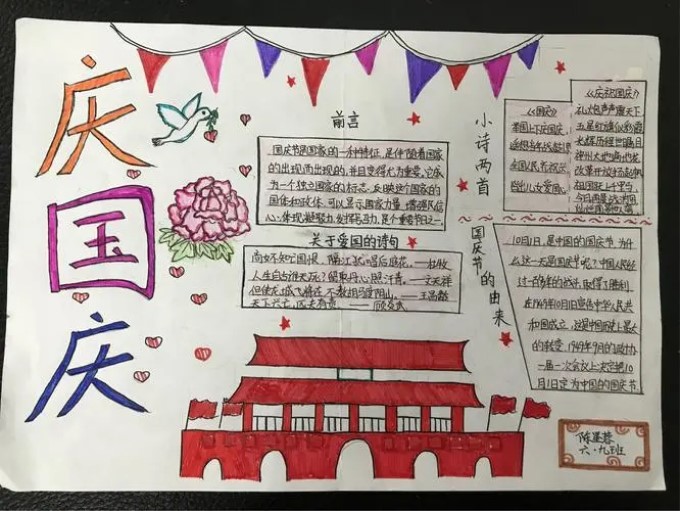 庆
国
庆
前言
国庆节是国家的一种特征,是伴随着国家
的出现而出现的,并且变得尤为重要,它成
为一个独立国家的标志,反映这个国家的
国体和政体,可以显示国家力量、增强民信
心,体现凝聚力,发挥号召力,是个重要节日之一。
关于爱国的诗句
商女不知亡国恨,隔江犹唱后庭花。——杜牧
人生自古谁无死?留取丹心照汗青。——文天祥
但使龙城飞将在,不教胡马度阴山。——王昌龄
天下兴亡,匹夫有责 ——顾炎武
小诗两首
《国庆》
举国上下庆国庆,
全国人民
儿女爱国。
《庆祝国庆》
礼炮声声震天下
五星红旗
神州大地
改革开放
祖国
国庆节的由来
10月1日,是中国的国庆节,为什
么这一天是国庆节呢?中国人民经
过一百多年的战斗,取得了胜利
在1949年10月1日宣告中华人民共
和国成立,这是中国历史上最大
的转变,1949年9月的政协
一届一次会议上决定把10
月1日定为中国的国庆节
六·九班